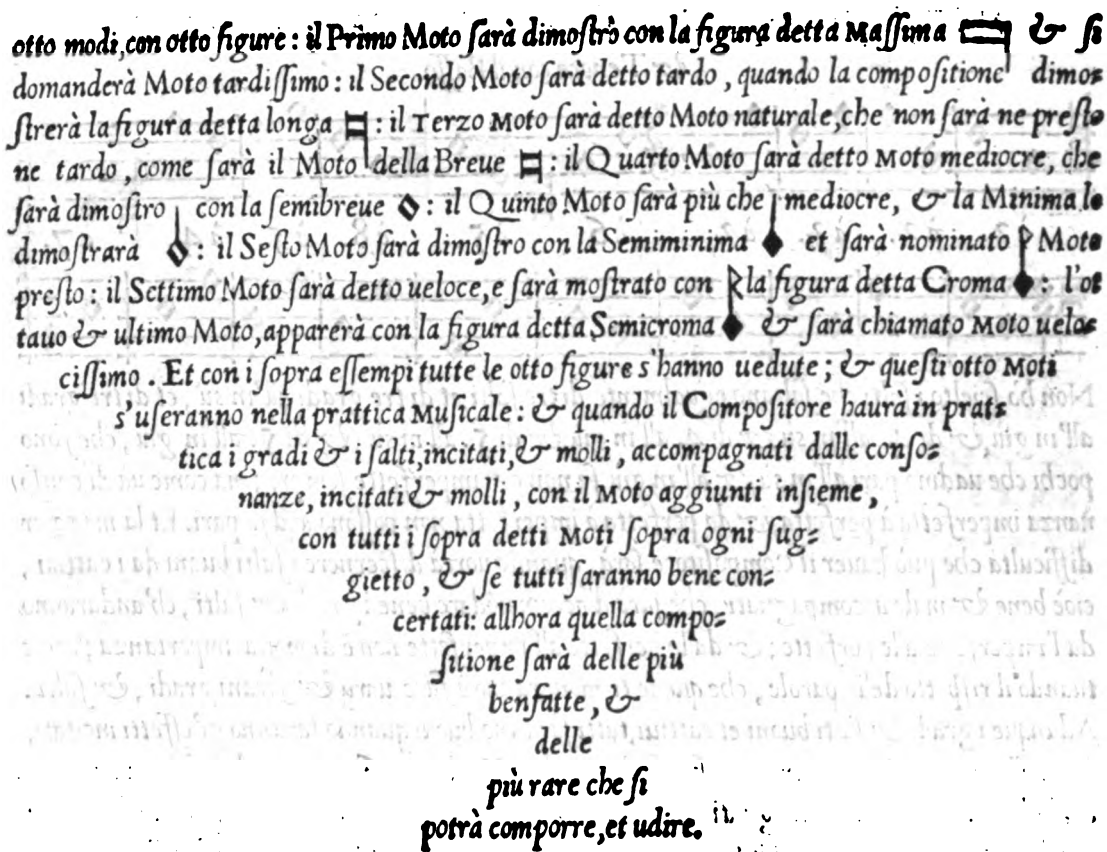 otto modi, con otto figure : il Primo Moto ſarà dimoſtrò con la figura detta Maſſima & ſi
domanderà Moto tardiſſimo : il Secondo Moto ſarà detto tardo , quando la compoſitione dimoſ⸗
ſtrerà la figura detta longa : il Terzo Moto ſarà detto Moto naturale, che non ſarà ne preſto
ne tardo , come ſarà il Moto della Breue : il Quarto Moto ſarà detto Moto mediocre, che
ſarà dimoſtro con la ſemibreue : il Quinto Moto ſarà più che mediocre, & la Minima lo
dimoſtrarà : il Seſto Moto ſarà dimoſtro con la Semiminima et ſarà nominato Moto
preſto : il Settimo Moto ſarà detto ueloce, e ſarà moſtrato con la figura detta Croma : l'ot
tauo & ultimo Moto, apparerà con la figura detta Semicroma & ſarà chiamato Moto uelo⸗
ciſſimo . Et con i ſopra eſſempi tutte le otto figure s'hanno uedute ; & queſti otto Moti
s'uſeranno nella prattica Muſicale : & quando il Compoſitore haurà in prat⸗
tica i gradi & i ſalti, incitati, & molli , accompagnati dalle conſo⸗
nanze, incitati & molli , con il Moto aggiunti inſieme ,
con tutti i ſopra detti Moti ſopra ogni ſug⸗
gietto , & ſe tutti ſaranno bene con⸗
certati: allhora quella compo⸗
ſitione ſarà delle più
benfatte , &
delle
più rare che ſi
potrà comporre, et udire.